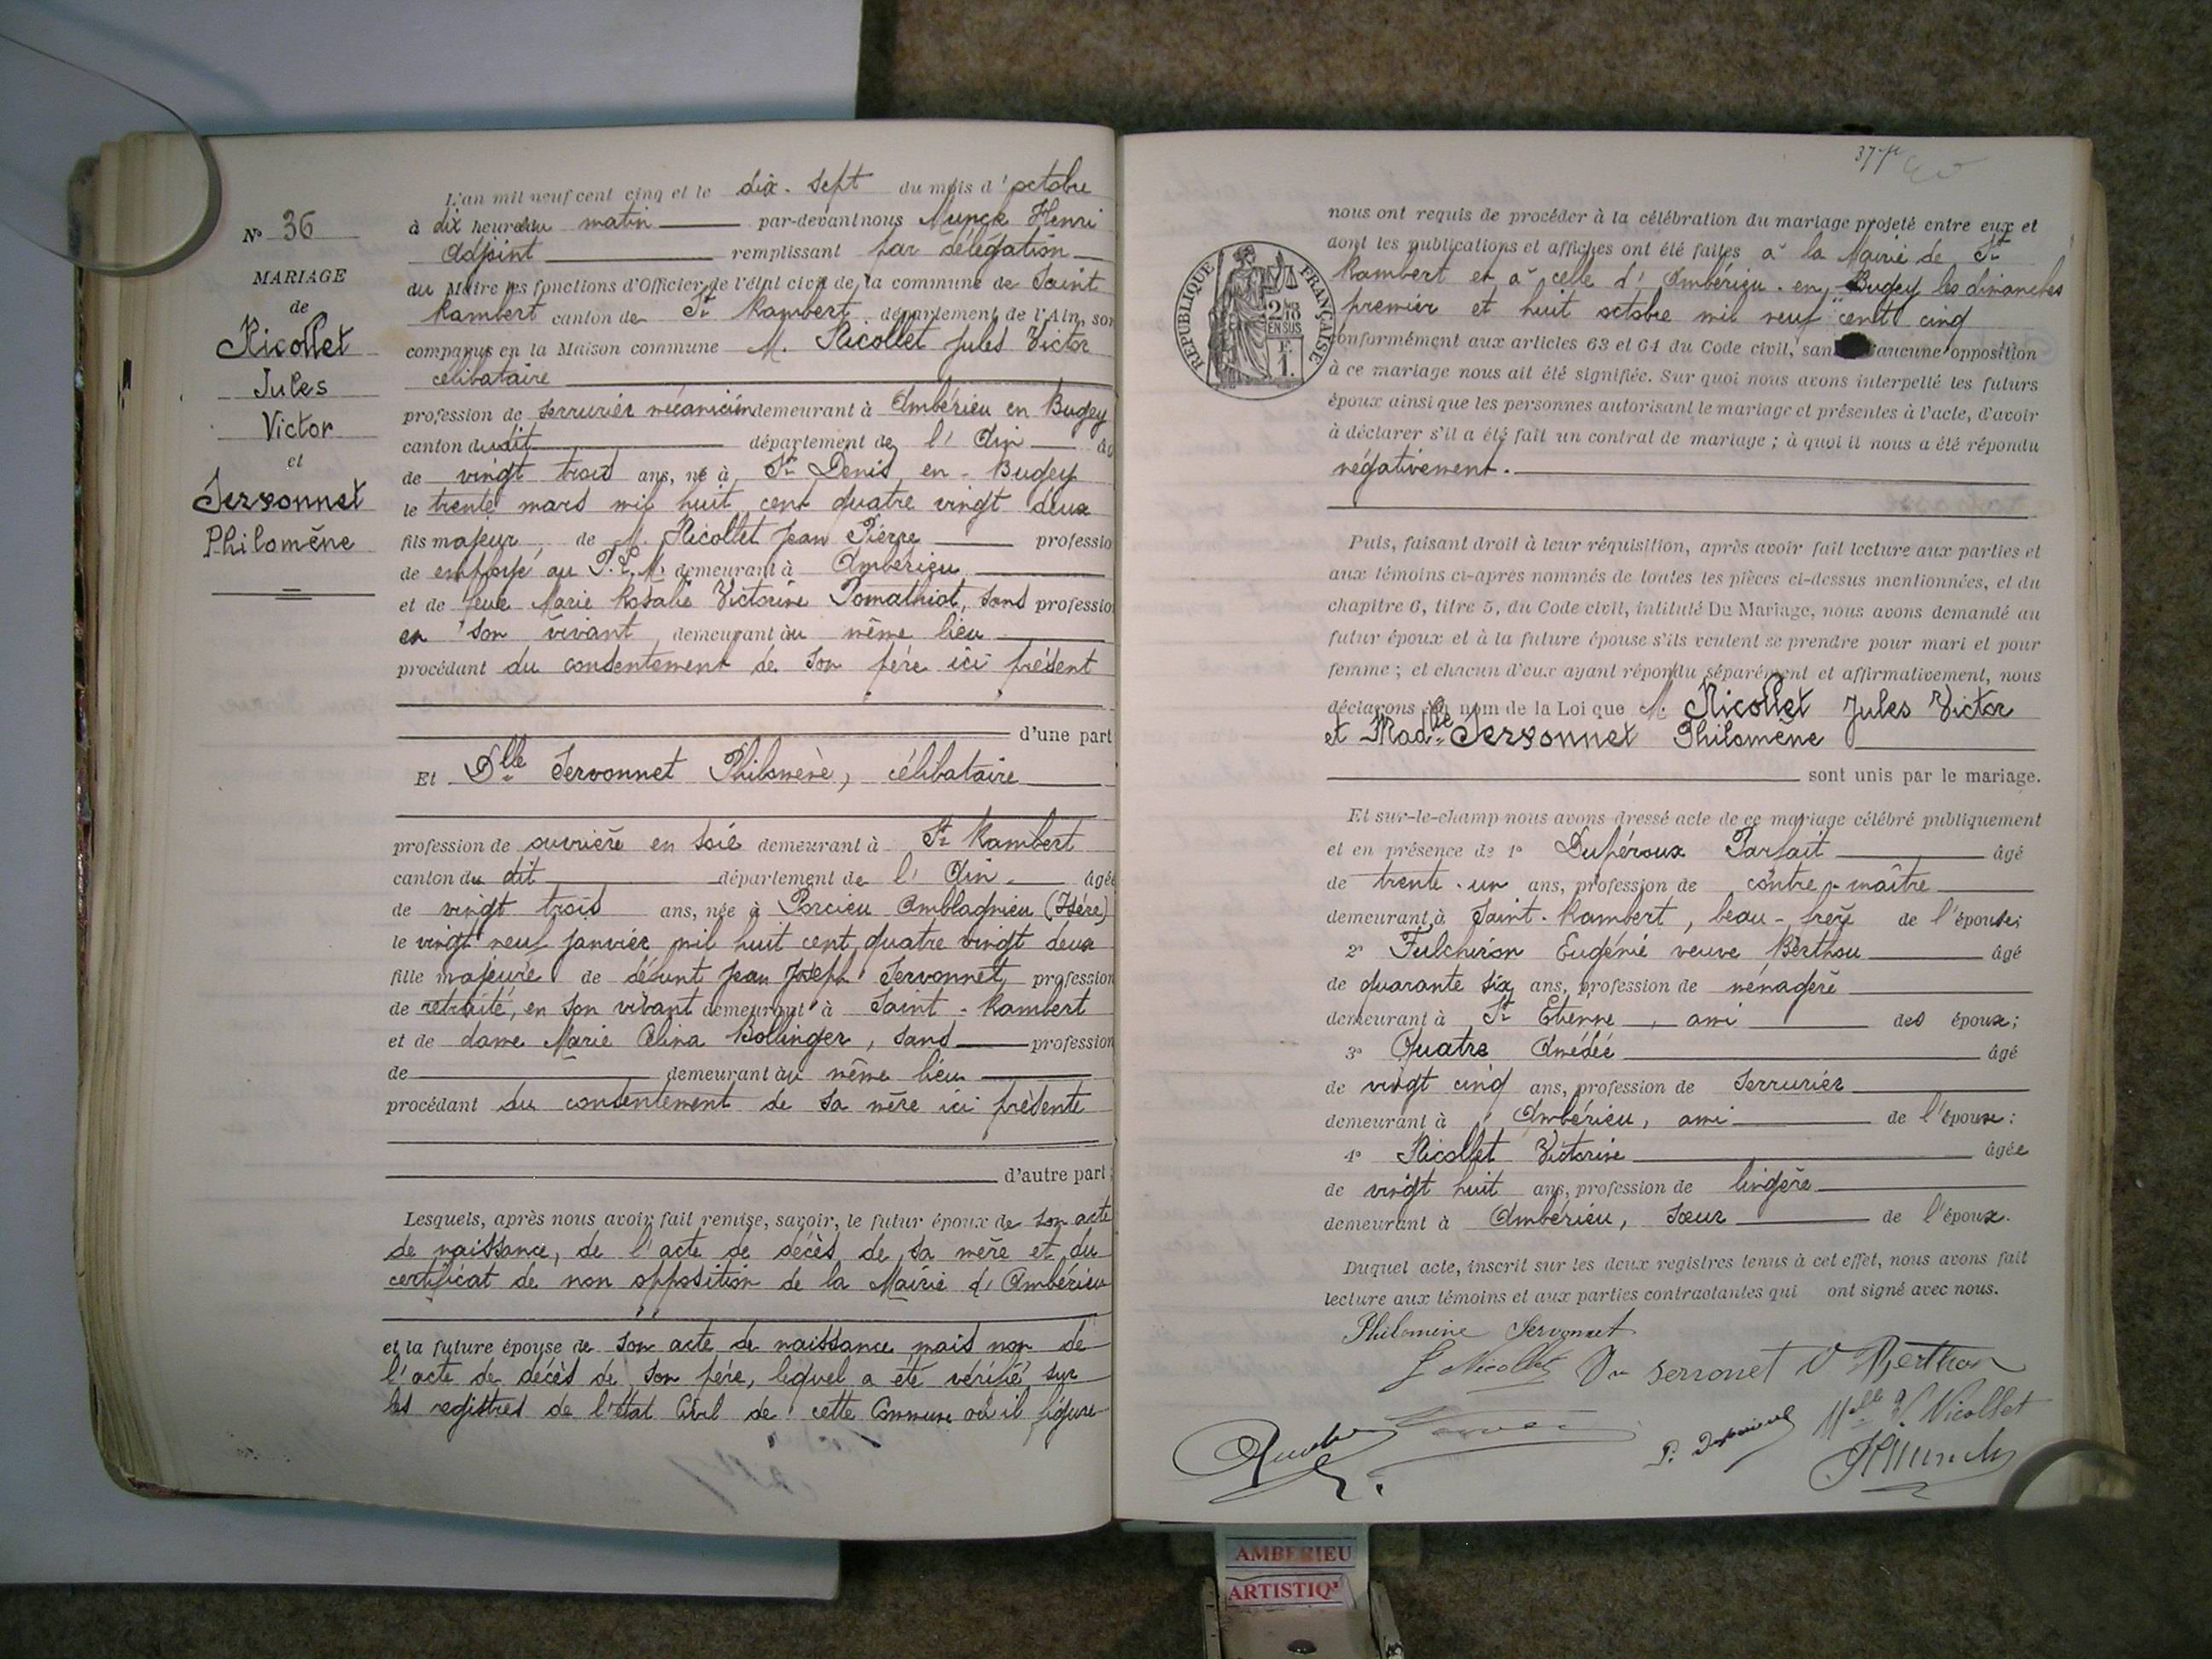 N° 36
MARIAGE
de
Nicollet
Jules
Victor
et
Servonnet
Philomène
L'an mil neuf cent cinq et le dix-sept du mois d'octobre
à dix heures du matin par-devant nous Munck Henri
adjoint remplissant par délégation
du Maire les fonctions d'Officier de l'état civil de la commune de Saint
Rambert canton de St Rambert, département de l'Ain, son
comparus en la Maison commune M. Nicollet Jules Victor
célibataire
profession de serrurier mécanicien demeurant à Ambérieu en Bugey
canton dudit département de l'Ain âg
de vingt trois ans, né à St Denis en-Bugey
le trente mars mil huit cent quatre vingt deux
fils majeur de M. Nicollet Jean Pierre professio
de employé au P.L.M. demeurant à Ambérieu
et de feue Marie Rosalie Victorine Pomathiot, sans professio
en son vivant demeurant au même lieu
procédant du consentement de son père ici présent
d'une part
Et Dlle Servonnet Philomène, célibataire
profession de ouvrière en soie demeurant à St Rambert
canton du dit département de l'Ain âgée
de vingt trois ans, née à Porcieu Amblagnieu (Isère)
le vingt neuf janvier mil huit cent quatre vingt deux
fille majeure de défunt Jean Joseph Servonnet, profession
de retraité, en son vivant demeurant à Saint-Rambert
et de dame Marie Célina Bollinger, sans profession
de demeurant au même lieu
procédant du consentement de sa mère ici présente
d'autre part;
Lesquels, après nous avoir fait remise, savoir, le futur époux de son acte
de naissance, de l'acte de décès de sa mère et du
certificat de non opposition de la Mairie d'Ambérieu
et la future épouse de son acte de naissance mais non de
l'acte de décès de son père, lequel a été vérifié sur
les registres de l'état Civil de cette Commune où il figure
37
nous ont requis de procéder à la célébration du mariage projeté entre eux et
dont les publications et affiches ont été faites à la Mairie de St
Rambert et à celle d'Ambérieu-en-Bugey les dimanches
premier et huit octobre mil neuf cent cinq
conformément aux articles 63 et 64 du Code civil, san aucune opposition
à ce mariage nous ait été signifiée. Sur quoi nous avons interpellé les futurs
époux ainsi que les personnes autorisant le mariage et présentes à l'acte, d'avoir
à déclarer s'il a été fait un contrat de mariage; à quoi il nous a été répondu
négativement.
RÉPUBLIQUE FRANÇAISE
2/10 EN SUS
F. 1.
Puis, faisant droit à leur réquisition, après avoir fait lecture aux parties et
aux témoins ci-après nommés de toutes les pièces ci-dessus mentionnées, et du
chapitre 6, titre 5, du Code civil, intitulé Du Mariage, nous avons demandé au
futur époux et à la future épouse s'ils veulent se prendre pour mari et pour
femme; et chacun d'eux ayant répondu séparément et affirmativement, nous
déclarons au nom de la Loi que M. Nicollet Jules Victor
et Madlle Servonnet Philomène
sont unis par le mariage.
Et sur-le-champ nous avons dressé acte de ce mariage célébré publiquement
et en présence de 1° Dupéroux Parfait âgé
de trente-un ans, profession de contre-maître
demeurant à Saint-Rambert, beau-frère de l'épouse;
2° Fulchiron Eugénie veuve Berthou âgé
de quarante six ans, profession de ménagère
demeurant à St Etienne, ami des époux;
3° Quatre Amédée âgé
de vingt cinq ans, profession de serrurier
demeurant à Ambérieu, ami de l'époux:
4° Nicollet Victorine âgée
de vingt huit ans, profession de lingère
demeurant à Ambérieu, soeur de l'époux.
Duquel acte, inscrit sur les deux registres tenus à cet effet, nous avons fait
lecture aux témoins et aux parties contractantes qui ont signé avec nous.
Philomène Servonnet
J Nicollet Servonet V Berthou
P. Melle V. Nicollet
HMunck
AMBERIEU
ARTISTIQ